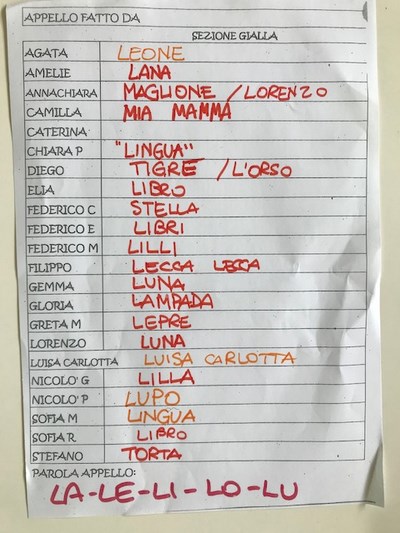 APPELLO FATTO DA
SEZIONE GIALLA
AGATA LEONE
AMELIE LANA
ANNACHIARA MAGLIONE / LORENZO
CAMILLA MIA MAMMA
CATERINA
CHIARA P "LINGUA"
DIEGO TIGRE / L'ORSO
ELIA LIBRO
FEDERICO C STELLA
FEDERICO E LIBRI
FEDERICO M LILLI
FILIPPO LECCA LECCA
GEMMA LUNA
GLORIA LAMPADA
GRETA M LEPRE
LORENZO LUNA
LUISA CARLOTTA LUISA CARLOTTA
NICOLO' G LILLA
NICOLO' P LUPO
SOFIA M LINGUA
SOFIA R LIBRO
STEFANO TORTA
PAROLA APPELLO:
LA-LE-LI-LO-LU